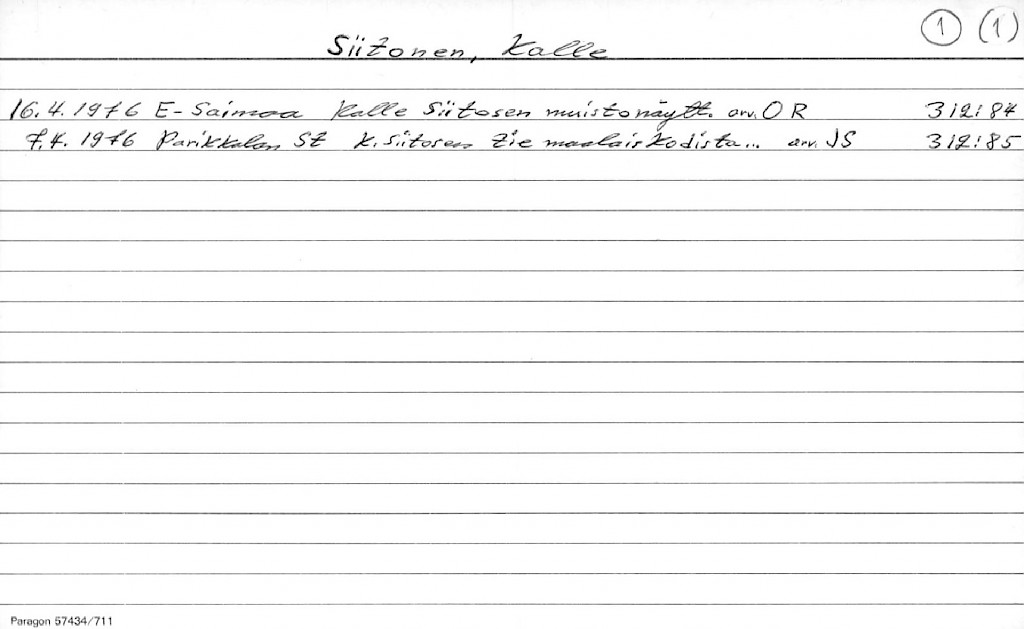 ① (1)
Siitonen, Kalle
16.4.1976 E-Saimaa Kalle Siitosen muistonäytt. arv. OR 312:84
7.4.1976 Parikkalan St K. Siitosen tie maalaiskodista... arv. JS 312:85
Paragon 57434/711